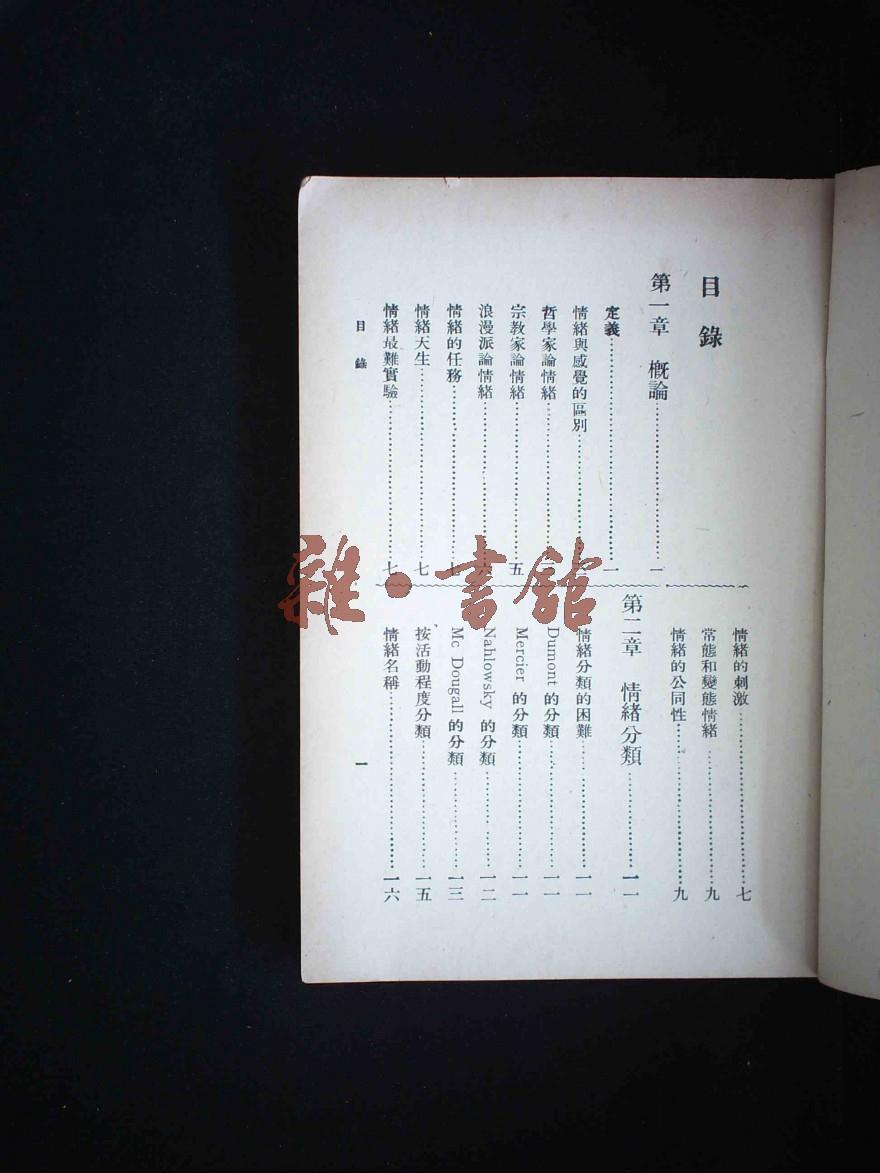 目錄
第一章 概論……一
定義……一
情緒與感覺的區別……
哲學家論情緒……
宗教家論情緒……五
浪漫派論情緒……六
情緒的任務……七
情緒天生……七
情緒最難實驗……七
情緒的刺激……七
常態和變態情緒……九
情緒的公同性……九
第二章 情緒分類……一一
情緒分類的困難……一一
Dumont 的分類……一一
Mercier 的分類……一一
Nahlowsky 的分類……一二
Mc Dougall 的分類……一三
按活動程度分類……一五
情緒名稱……一六
目錄
一
雜·書館